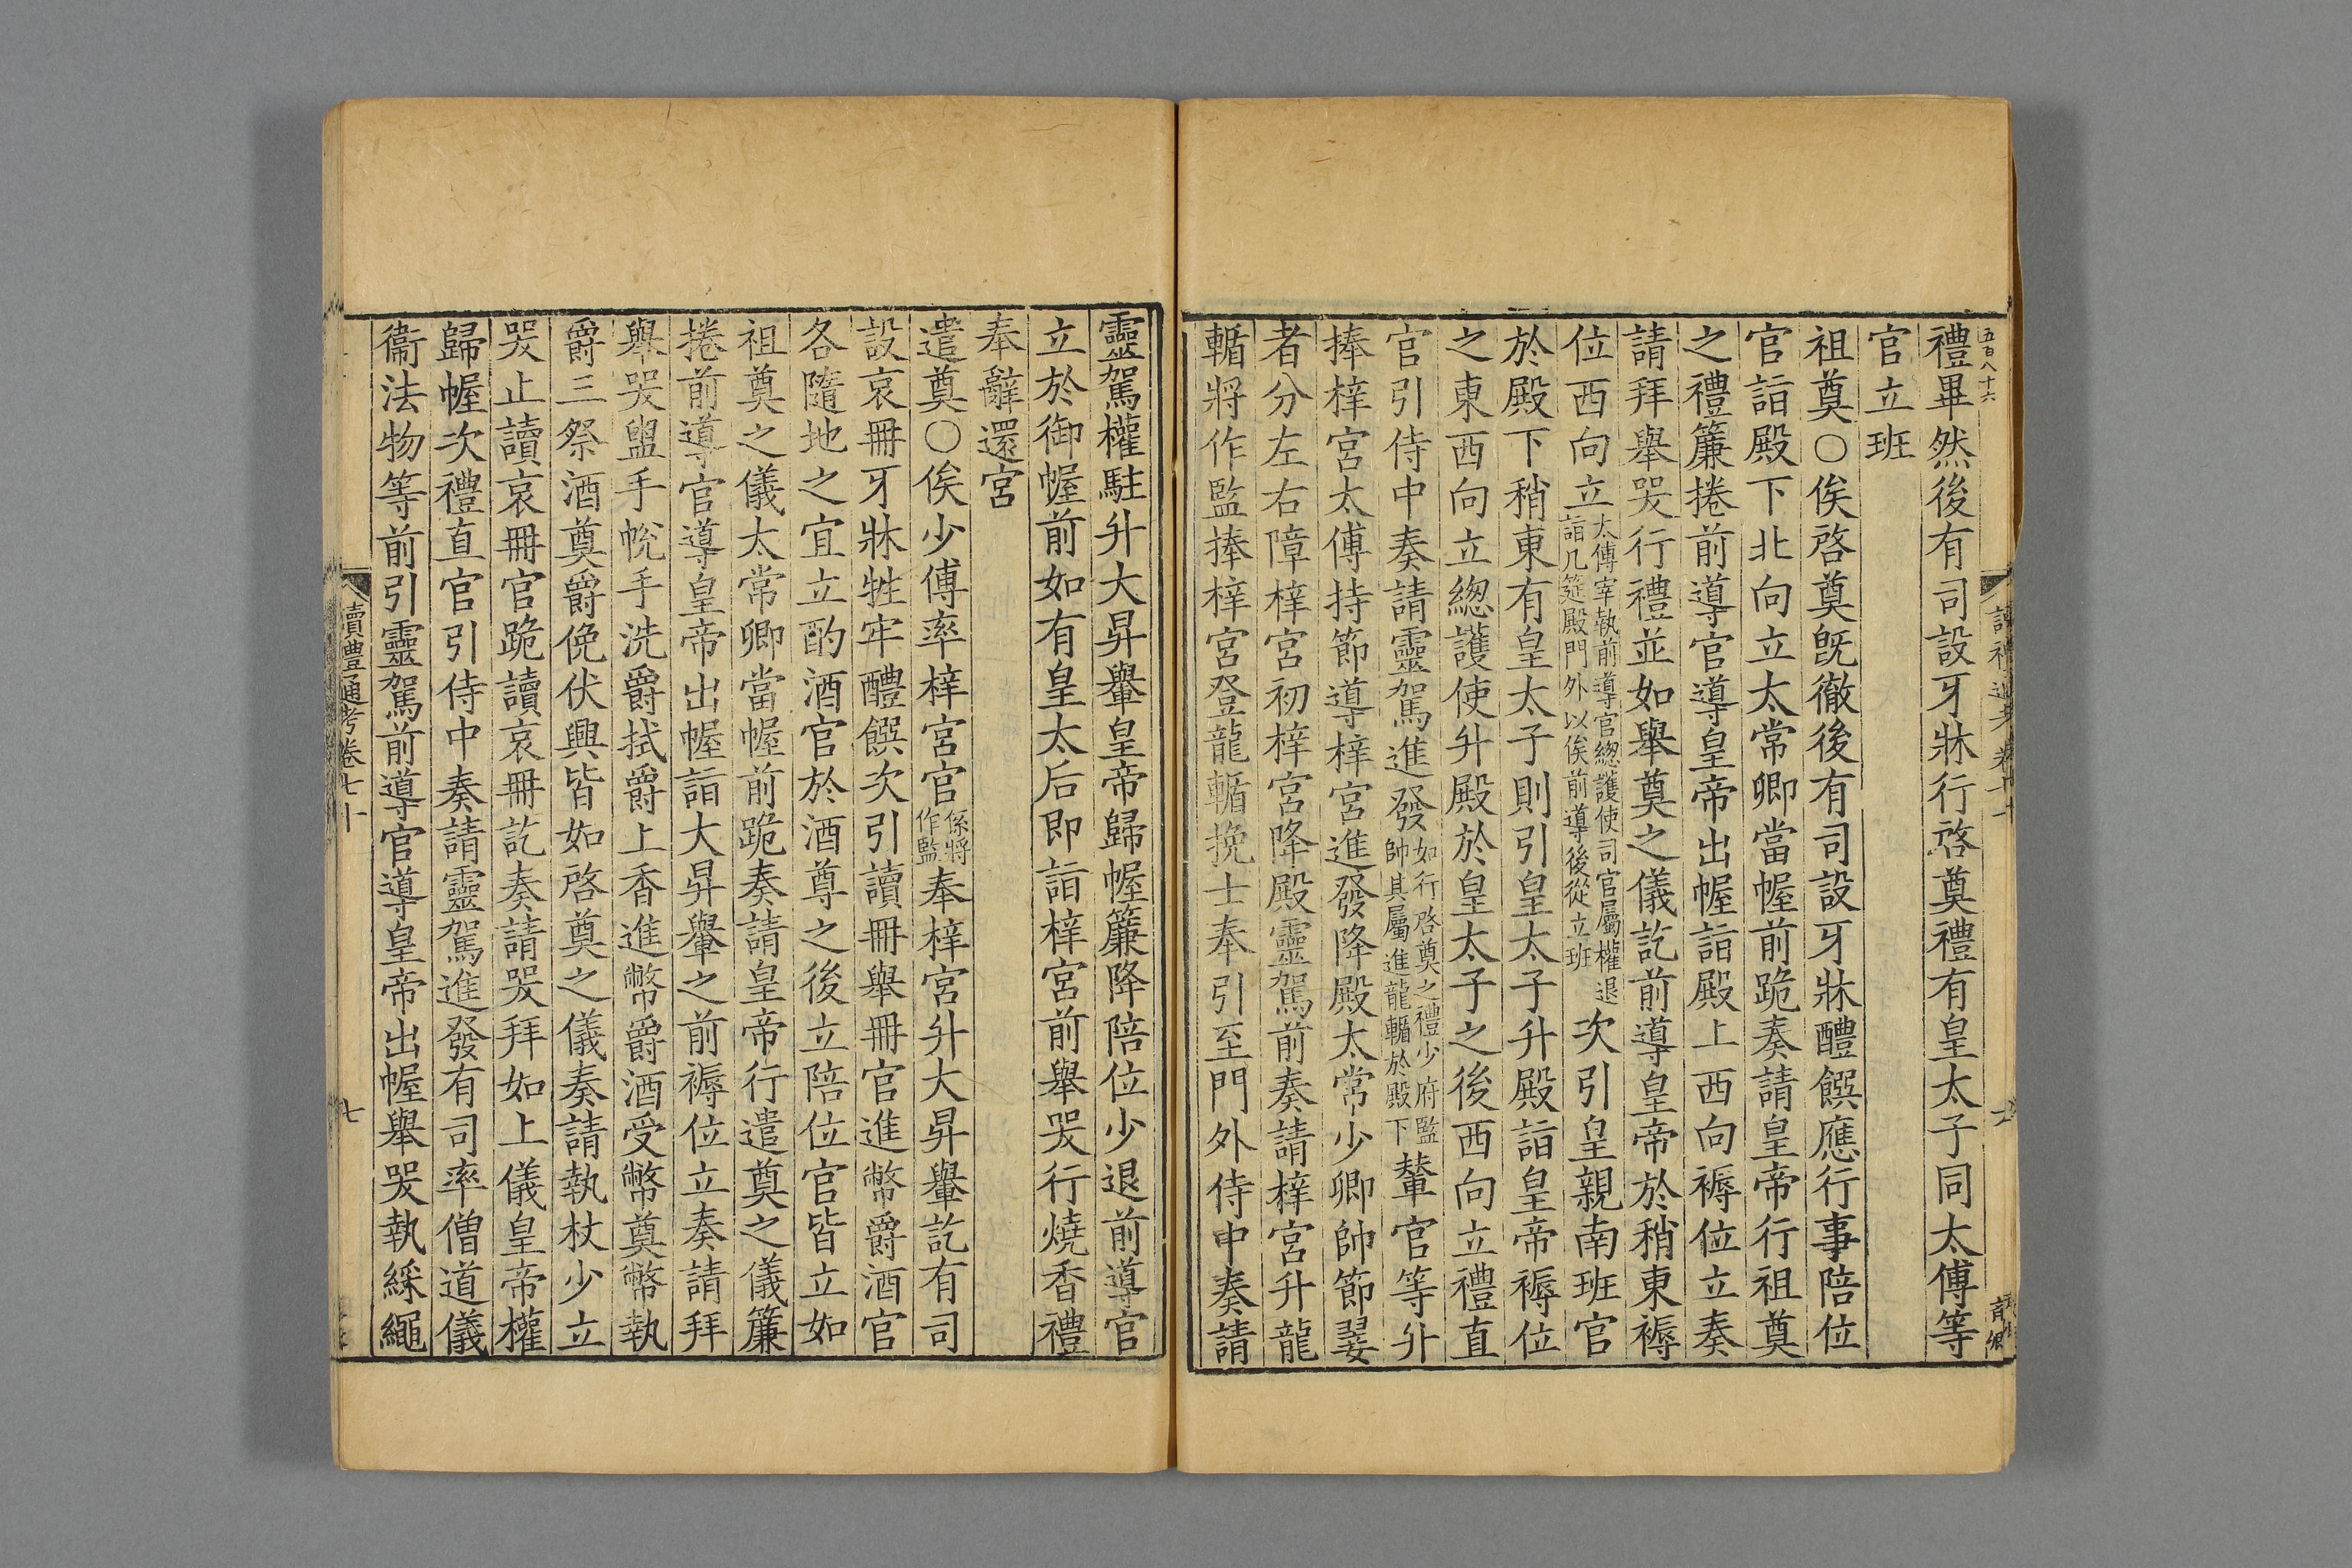 五百八十六
禮畢然後有司設牙牀行啓奠禮有皇太子同太傅等
官立班
祖奠○俟啓奠旣徹後有司設牙牀醴饌應行事陪位
官詣殿下北向立太常卿當幄前跪奏請皇帝行祖奠
之禮簾捲前導官導皇帝出幄詣殿上西向褥位立奏
請拜舉哭行禮並如舉奠之儀訖前導皇帝於稍東褥
位西向立太傅宰執前導官緫護使司官屬權退詣几筵殿門外以俟前導後從立班次引皇親南班官
於殿下稍東有皇太子則引皇太子升殿詣皇帝褥位
之東西向立緫護使升殿於皇太子之後西向立禮直
官引侍中奏請靈駕進發如行啓奠之禮少府監帥其屬進龍輴於殿下輦官等升
捧梓宮太傅持節導梓宮進發降殿太常少卿帥節翣
者分左右障梓宮初梓宮降殿靈駕前奏請梓宮升龍
輴將作監捧梓宮登龍輴挽士奉引至門外侍中奏請
靈駕權駐升大昇轝皇帝歸幄簾降陪位少退前導官
立於御幄前如有皇太后即詣梓宮前舉哭行燒香禮
奉辭還宮
遣奠○俟少傅率梓宮官係將作監奉梓宮升大昇轝訖有司
設哀冊牙牀牲牢醴饌次引讀冊舉冊官進幣爵酒官
各隨地之宜立酌酒官於酒尊之後立陪位官皆立如
祖奠之儀太常卿當幄前跪奏請皇帝行遣奠之儀簾
捲前導官導皇帝出幄詣大昇轝之前褥位立奏請拜
舉哭盥手帨手洗爵拭爵上香進幣爵酒受幣奠幣執
爵三祭酒奠爵俛伏興皆如啓奠之儀奏請執杖少立
哭止讀哀冊官跪讀哀冊訖奏請哭拜如上儀皇帝權
歸幄次禮直官引侍中奏請靈駕進發有司率僧道儀
衞法物等前引靈駕前導官導皇帝出幄舉哭執綵繩
讀禮通考卷七十
七